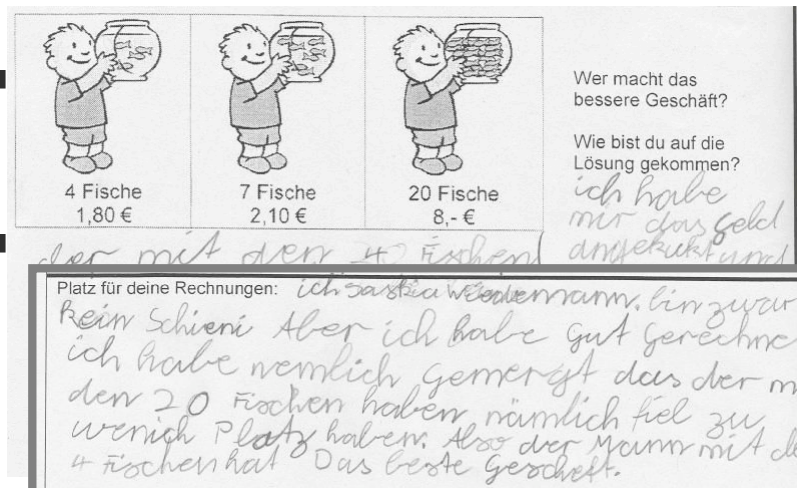 4 Fische
1,80 €
7 Fische
2,10 €
20 Fische
8,- €
Wer macht das
bessere Geschäft?
Wie bist du auf die
Lösung gekommen?
ich habe
mir das geld
angekukt und
der mit den 4 Fischen
Platz für deine Rechnungen: ich Saskia Wiedemann. bin zwar
kein Schieni Aber ich habe gut gerechne
ich habe nemlich gemergt das der m
den 20 Fischen haben nämlich fiel zu
wenich Platz haben. Also der Mann mit de
4 Fischen hat Das beste Gescheft.